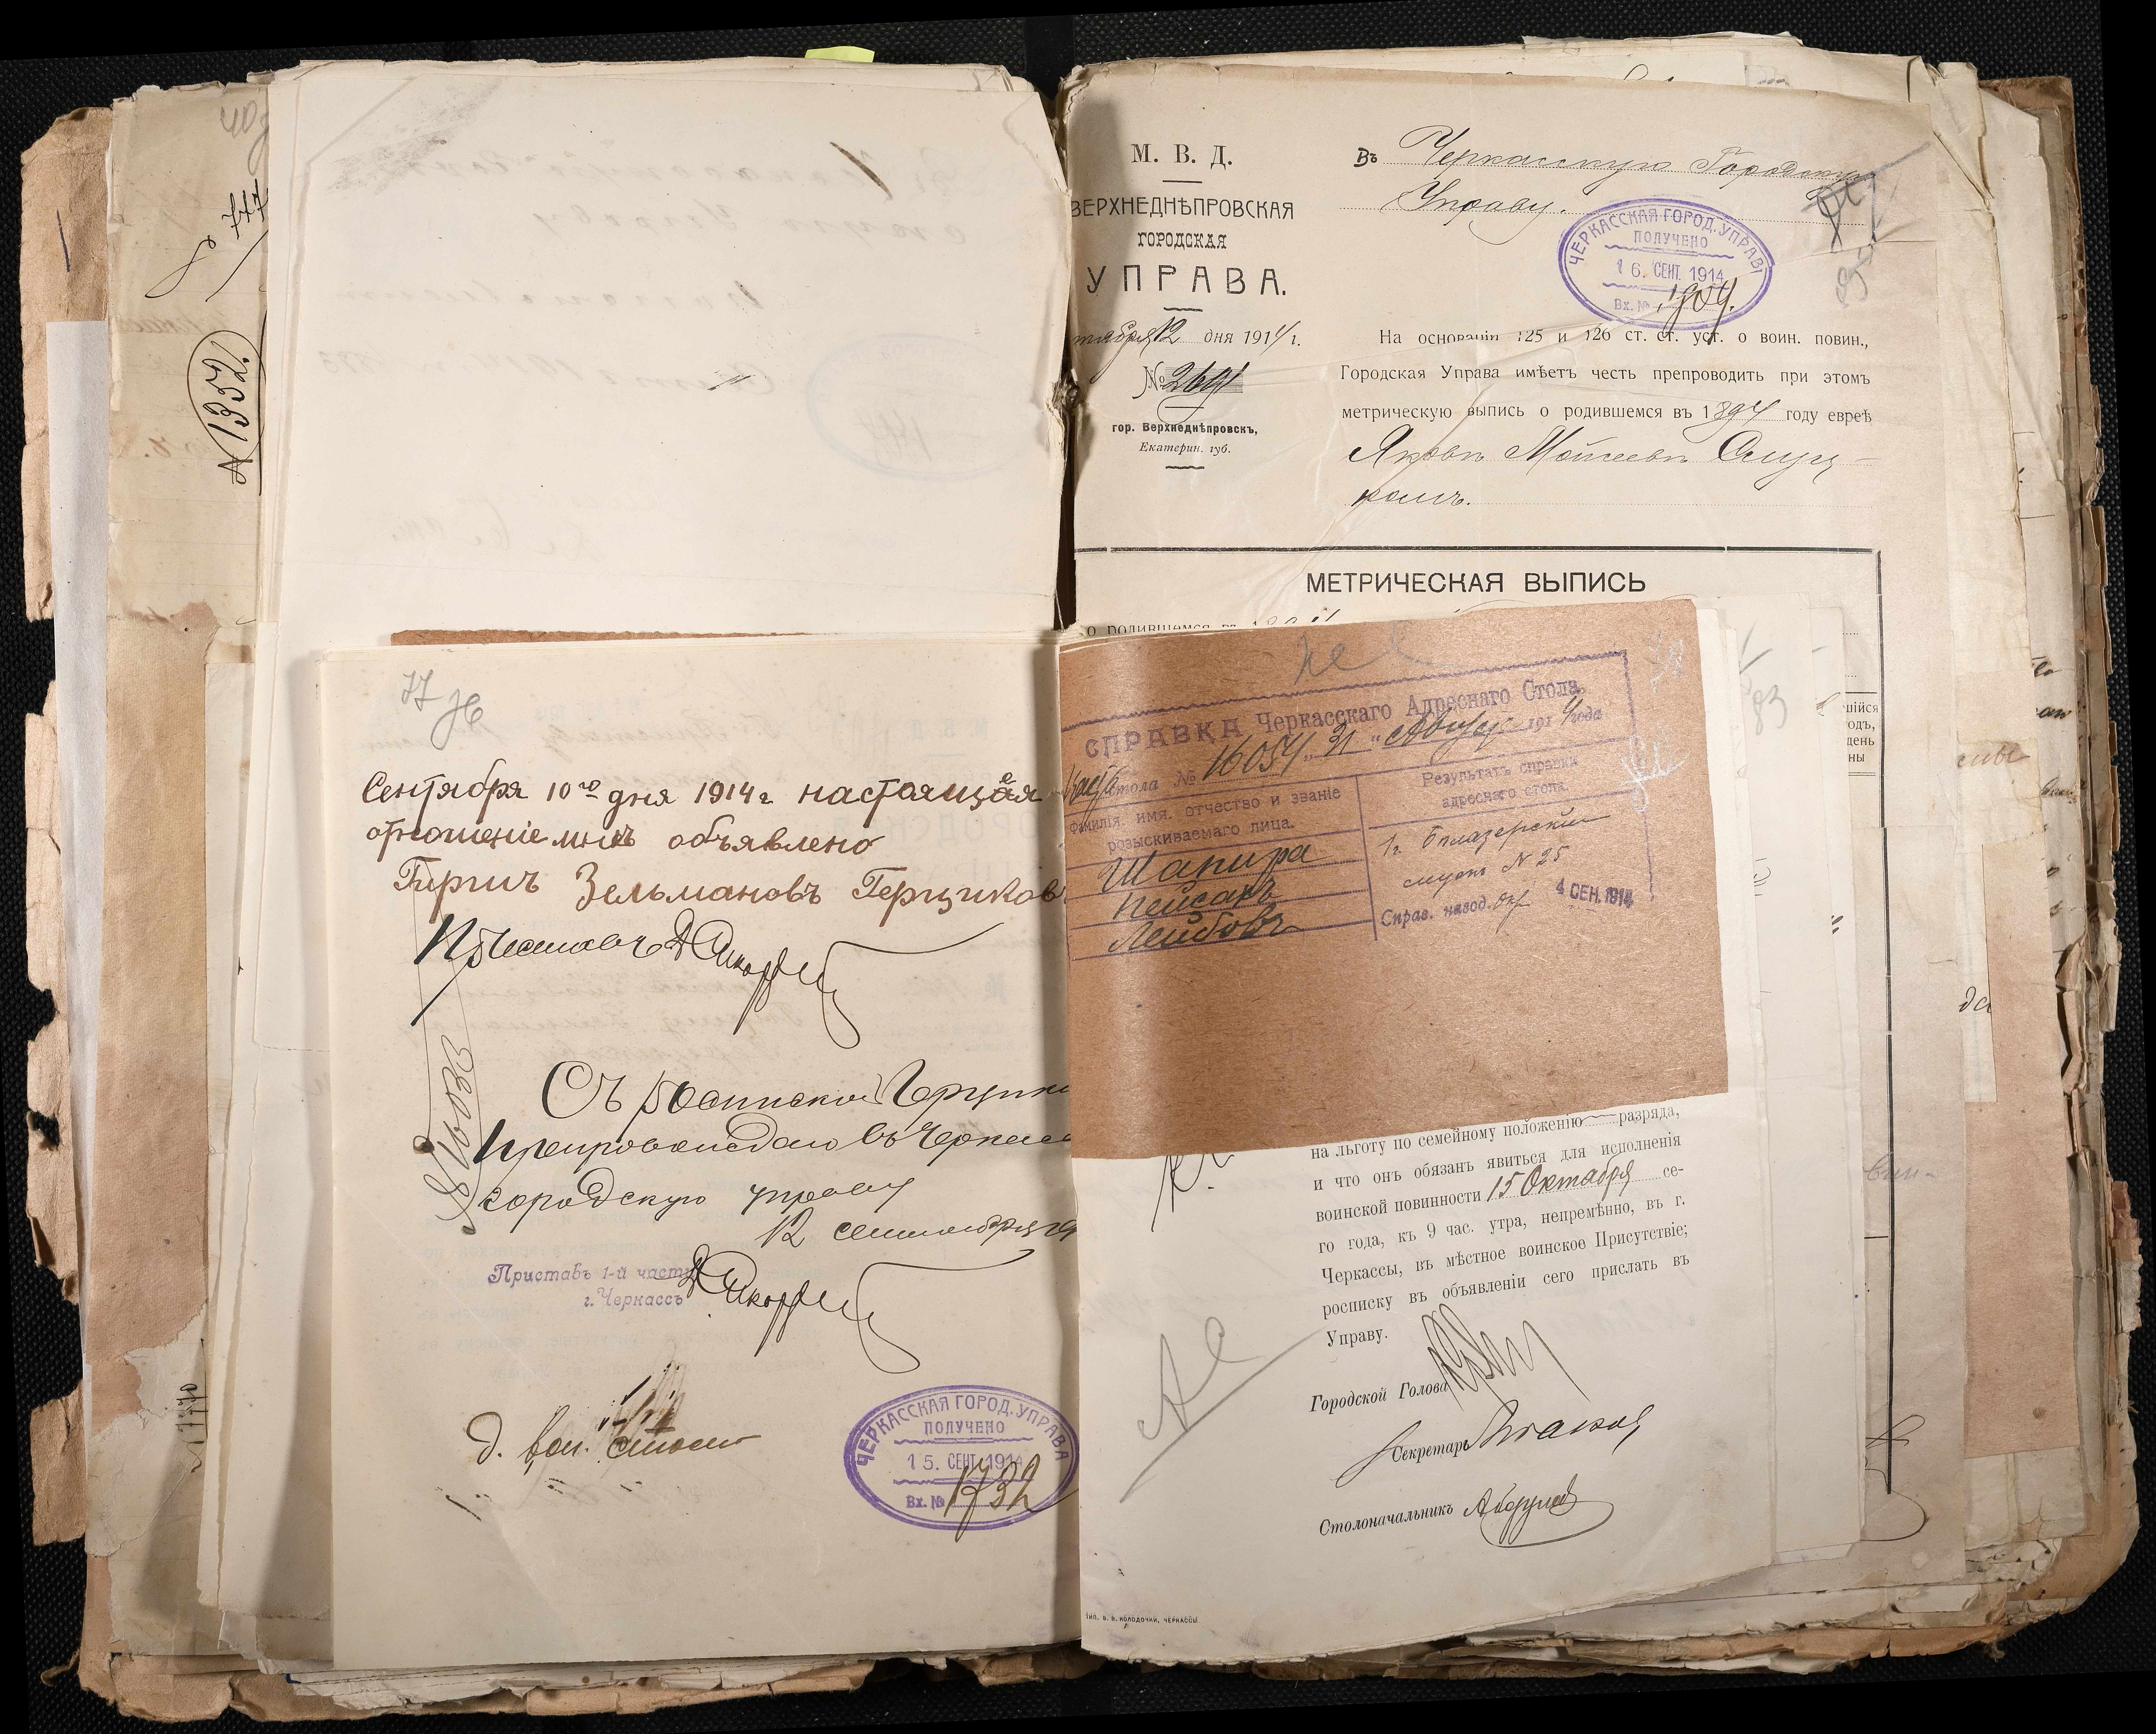 777
№ 1352.
77
76
Сентября 10го дня 1914 г настоящая
отношеніе мнѣ объявлено
Гиршъ Зельмановъ Герциковъ
Приставъ
Съ роспиской Герцико
препровождаю въ Черкасс
городскую управу
12 сентября 19
Приставъ 1-й части
г. Черкассъ
№ 16033
д. вои. столъ
ЧЕРКАССКАЯ ГОРОД. УПРАВА
ПОЛУЧЕНО
15. СЕНТ. 1914
Вх. № 1732
М. В. Д.
ВЕРХНЕДНѢПРОВСКАЯ
ГОРОДСКАЯ
УПРАВА.
тября 12 дня 1914 г.
№ 2691
гор. Верхнеднѣпровскъ,
Екатерин. губ.
Въ Черкасскую Городскую
Управу.
ЧЕРКАССКАЯ ГОРОД. УПРАВ
ПОЛУЧЕНО
16. СЕНТ. 1914
Вх. № 1904.
На основаніи 125 и 126 ст. ст. уст. о воин. повин.,
Городская Управа имѣетъ честь препроводить при этомъ
метрическую выпись о родившемся въ 1894 году евреѣ
Яковъ Моисеевъ
МЕТРИЧЕСКАЯ ВЫПИСЬ
о родившемся въ 1894
шійся
годъ,
день
ны
83
не
СПРАВКА Черкасскаго Адреснаго Стола.
стола № 16054 „31" Август 1914 года
Фамилія, имя, отчество и званіе
розыскиваемаго лица.
Шапира
Пейсахъ
Лейбовъ
Результатъ справки
адреснаго стола.
1 г Бѣлазерский
спускъ № 25
Справ. навод.
4 СЕН. 1914
на льготу по семейному положенію разряда,
и что онъ обязанъ явиться для исполненія
воинской повинности 15 Октября се-
го года, къ 9 час. утра, непремѣнно, въ г.
Черкассы, въ мѣстное воинское Присутствіе;
росписку въ объявленіи сего прислать въ
Управу.
Городской Голова
Секретарь
Столоначальникъ
ТИП. В. В. КОЛОДОЧКИ, ЧЕРКАССЫ.